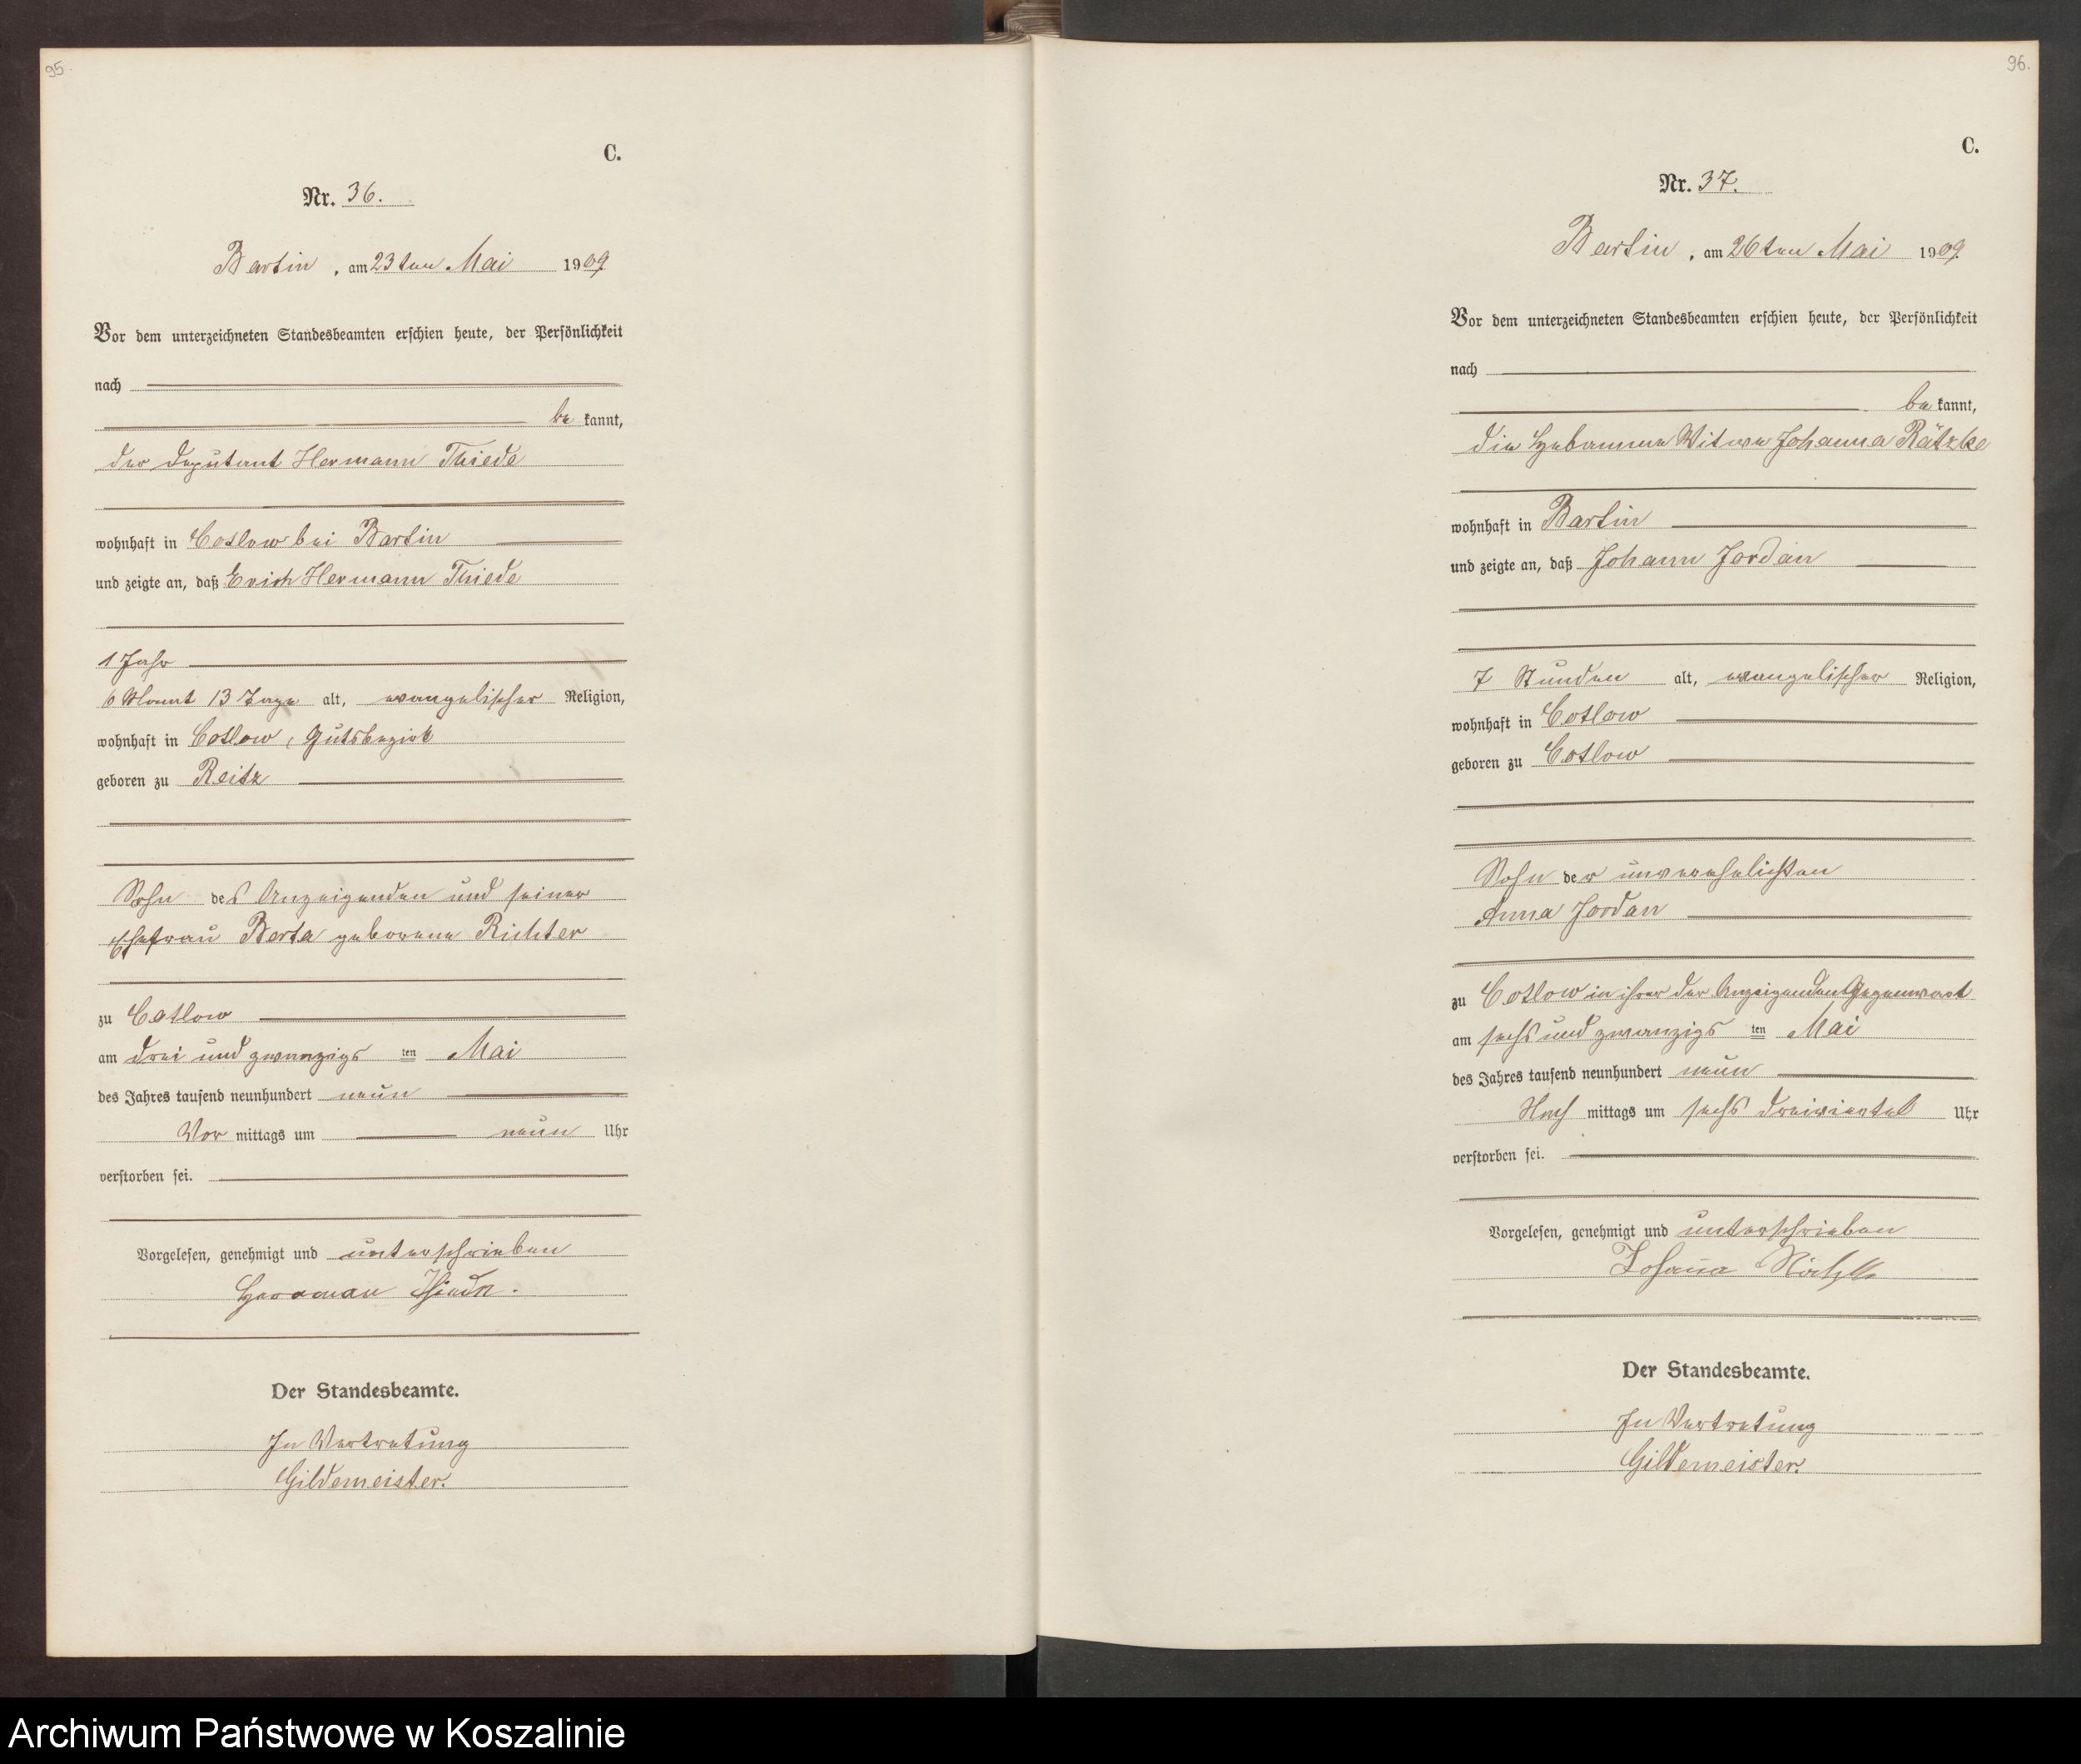 95.
C.
Nr. 36.
Bartin, am 23ten Mai 1909
Vor dem unterzeichneten Standesbeamten erschien heute, der Persönlichkeit
nach
be kannt,
der Deputant Hermann Thiede
wohnhaft in Cotlow bei Bartin
und zeigte an, daß Erich Hermann Thiede
1 Jahr
6 Monat 13 Tage alt, evangelischer Religion,
wohnhaft in Cotlow, Gutsbezirk
geboren zu Reitz
Sohn des Anzeigenden und seiner
Ehefrau Berta geborene Richter
zu Cotlow
am drei und zwanzigs ten Mai
des Jahres tausend neunhundert neun
Vor mittags um neun Uhr
verstorben sei.
Vorgelesen, genehmigt und unterschrieben
Herrman Thiede.
Der Standesbeamte.
In Vertretung
Gildemeister.
96.
C.
Nr. 37.
Bartin, am 26ten Mai 1909
Vor dem unterzeichneten Standesbeamten erschien heute, der Persönlichkeit
nach
be kannt,
die Hebamme Witwe Johanna Rätzke
wohnhaft in Bartin
und zeigte an, daß Johann Jordan
7 Stunden alt, evangelischer Religion,
wohnhaft in Cotlow
geboren zu Cotlow
Sohn der unverehelichten
Anna Jordan
zu Cotlow in ihrer der Anzeigenden Gegenwart
am sechs und zwanzigs ten Mai
des Jahres tausend neunhundert neun
Nach mittags um sechs dreiviertel Uhr
verstorben sei.
Vorgelesen, genehmigt und unterschrieben
Johanna Rätzke
Der Standesbeamte.
In Vertretung
Gildemeister.
Archiwum Państwowe w Koszalinie